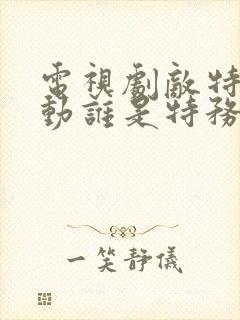 電視劇敵特
動誰是特務
一笑靜儀